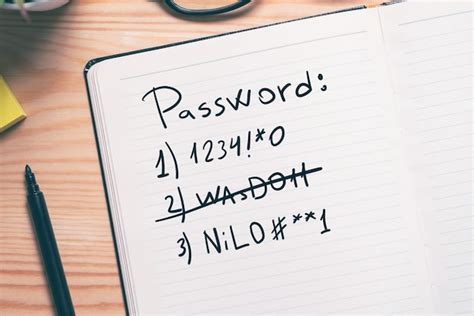 Password:
1) 1234!*0
2) WAsDO11
3) NiLO#**1